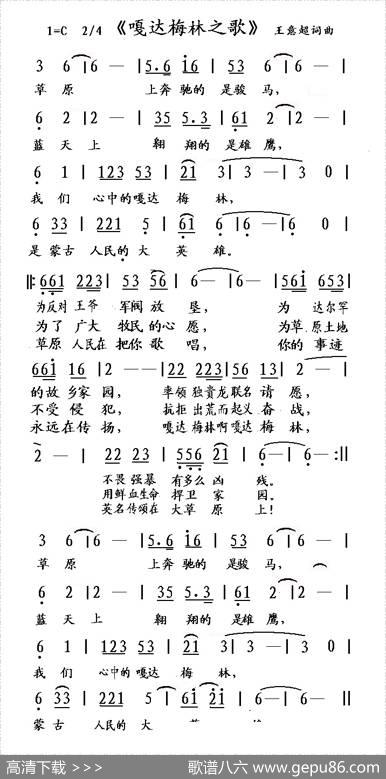 1=C 2/4 《嘎达梅林之歌》 王意超词曲
3 6 6 — 5.6 16 53 6 6 —
草原 上奔驰的是骏马,
6 2 2 — 35 5.3 61 2 2 —
蓝天上 翱翔的是雄鹰,
6 1 123 53 21 3 3 — 3 0
我们 心中的嘎达梅林,
6 33 221 5 61 6 6 — 6 0
是蒙古 人民的大英雄。
661 223 53 56 6 — 6 — 561 653
为反对王爷 军阀放垦, 为 达尔罕
为了广大 牧民的心愿, 为草原土地
草原人民在把你歌唱, 你的事迹
661 16 2 — 22 223 56 13 2 —
的故乡家园, 率领独贵龙联名请愿,
不受侵犯, 抗拒出荒而起义奋战,
永远在传扬, 嘎达梅林啊嘎达梅林,
2 — 22 23 556 21 6 — 6 —
不畏强暴 有多么凶残。
用鲜血生命 捍卫家园。
英名传颂在大草原上!
3 6 6 — 5.6 16 53 6 6 —
草原 上奔驰的是骏马,
6 2 2 — 35 5.3 61 2 2 —
蓝天上 翱翔的是雄鹰,
6 1 123 53 21 3 3 — 3 0
我们 心中的嘎达梅林,
6 33 221 5 61 21 6 — 6 —
蒙古 人民的大
高清下载 >>> 歌谱八六 www.gepu86.com